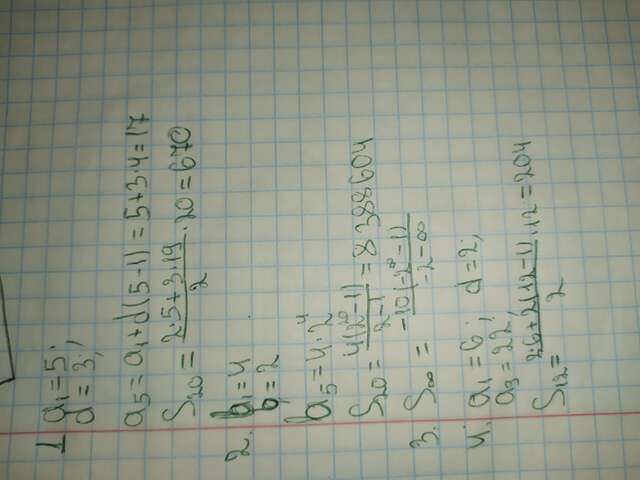 1 a₁=5;
d=3;
a₅=a₁+d(5-1)=5+3·4=17
S₂₀= (2·5+3·19)/2 ·20=670
2. b₁=4
b₁=2
b₅=4·2⁴
S₂₀= 4(2²⁰-1)/(2-1) =8388604
3. S∞ =
4. a₁=6; d=2;
a₉=22;
S₁₂= (2·6+2(12-1))/2 ·12=204